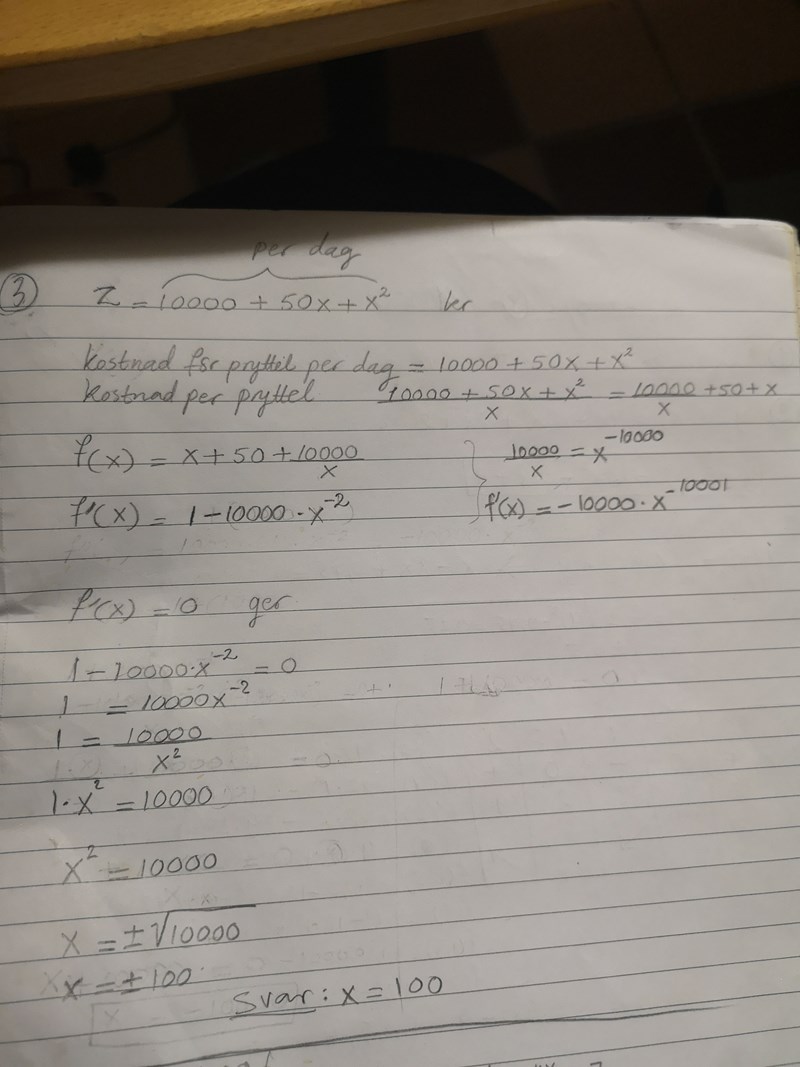 per dag
③ Z = 10000 + 50x + x² kr
Kostnad för pryttel per dag = 10000 + 50x + x²
Kostnad per pryttel (10000 + 50x + x²)/x = 10000/x + 50 + x
f(x) = x + 50 + 10000/x } 10000/x = x^-10000
f'(x) = 1 - 10000 · x^-2 f'(x) = -10000 · x^-10001
f'(x) = 0 ger
1 - 10000·x^-2 = 0
1 = 10000x^-2
1 = 10000/x²
1·x² = 10000
x² = 10000
x = ±√10000
x = ±100
Svar: x = 100